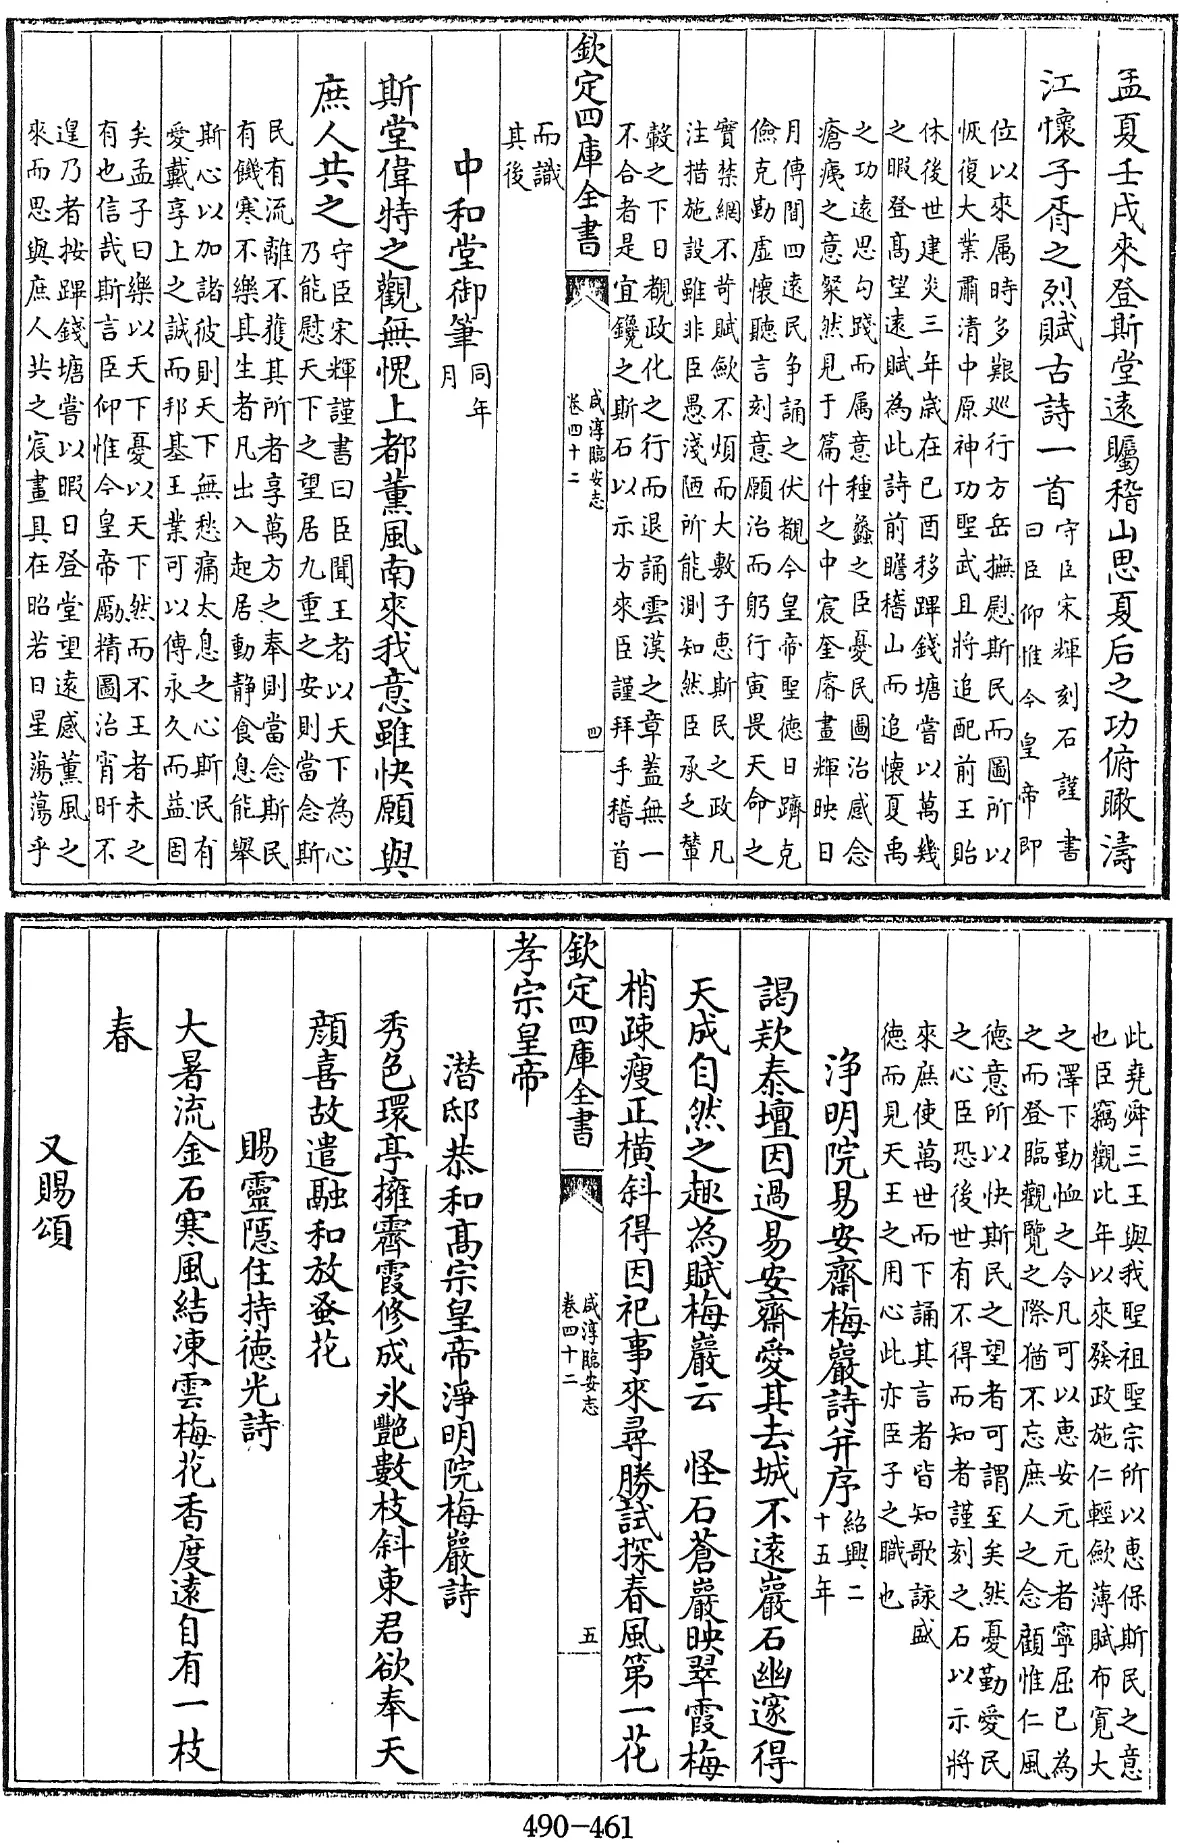 孟夏壬戌來登斯堂遠矚稽山思夏后之功俯瞰濤
江懷子胥之烈賦古詩一首
守臣宋輝刻石謹書
曰臣仰惟今皇帝即
位以來属時多艱廵行方岳撫慰斯民而圖所以
恢復大業肅清中原神功聖武且將追配前王貽
休後世建炎三年歲在已酉移蹕錢塘嘗以萬幾
之暇登髙望遠賦為此詩前瞻稽山而追懷夏禹
之功遠思勾踐而属意種蠡之臣憂民圖治感念
瘡痍之意粲然見于篇什之中宸奎睿畫輝映日
月傳聞四遠民争誦之伏覩今皇帝聖德日躋克
儉克勤虚懷聽言刻意願治而躬行寅畏天命之
寳禁網不苛賦歛不煩而大敷子惠斯民之政凡
注措施設雖非臣愚淺陋所能測知然臣承乏輦
轂之下日覩政化之行而退誦雲漢之章蓋無一
不合者是宜鑱之斯石以示方來臣謹拜手稽首
欽定四庫全書
咸淳臨安志
卷四十二
四
而識
其後
中和堂御筆
同年
月
斯堂偉特之觀無愧上都薫風南來我意雖快願與
庶人共之
守臣宋輝謹書曰臣聞王者以天下為心
乃能慰天下之望居九重之安則當念斯
民有流離不獲其所者享萬方之奉則當念斯民
有饑寒不樂其生者凡出入起居動静食息能舉
斯心以加諸彼則天下無愁痛太息之心斯民有
愛戴享上之誠而邦基王業可以傳永久而益固
矣孟子曰樂以天下憂以天下然而不王者未之
有也信哉斯言臣仰惟今皇帝勵精圖治宵旰不
遑乃者按蹕錢塘嘗以暇日登堂望遠感薫風之
來而思與庶人共之宸畫具在昭若日星蕩蕩乎
此堯舜三王與我聖祖聖宗所以惠保斯民之意
也臣竊觀比年以來發政施仁輕歛薄賦布寛大
之澤下勤恤之令凡可以惠安元元者寧屈已為
之而登臨觀覽之際猶不忘庶人之念顧惟仁風
德意所以快斯民之望者可謂至矣然憂勤愛民
之心臣恐後世有不得而知者謹刻之石以示將
來庶使萬世而下誦其言者皆知歌詠盛
德而見天王之用心此亦臣子之職也
浄明院易安齋梅巖詩并序
紹興二
十五年
謁欵泰壇因過易安齋愛其去城不遠巖石幽邃得
天成自然之趣為賦梅巖云　怪石蒼巖映翠霞梅
梢疎瘦正横斜得因祀事來尋勝試探春風第一花
欽定四庫全書
咸淳臨安志
卷四十二
五
孝宗皇帝
潛邸恭和髙宗皇帝淨明院梅巖詩
秀色環亭擁霽霞修成氷艷數枝斜東君欲奉天
顔喜故遣融和放蚤花
賜靈隱住持徳光詩
大暑流金石寒風結凍雲梅花香度遠自有一枝
春
又賜頌
490-461